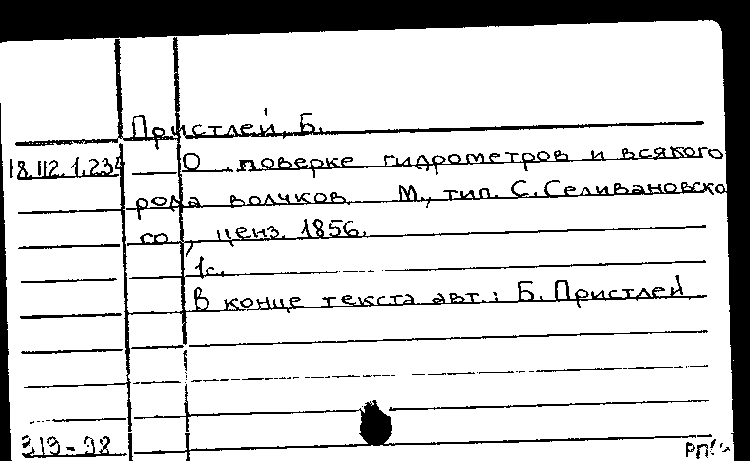 Пристлей, Б.
18.112.1.234
О поверке гидрометров и всякого
рода волчков. М., тип. С. Селивановско
го, ценз. 1856.
1с.
В конце текста авт.: Б. Пристлей
319-98